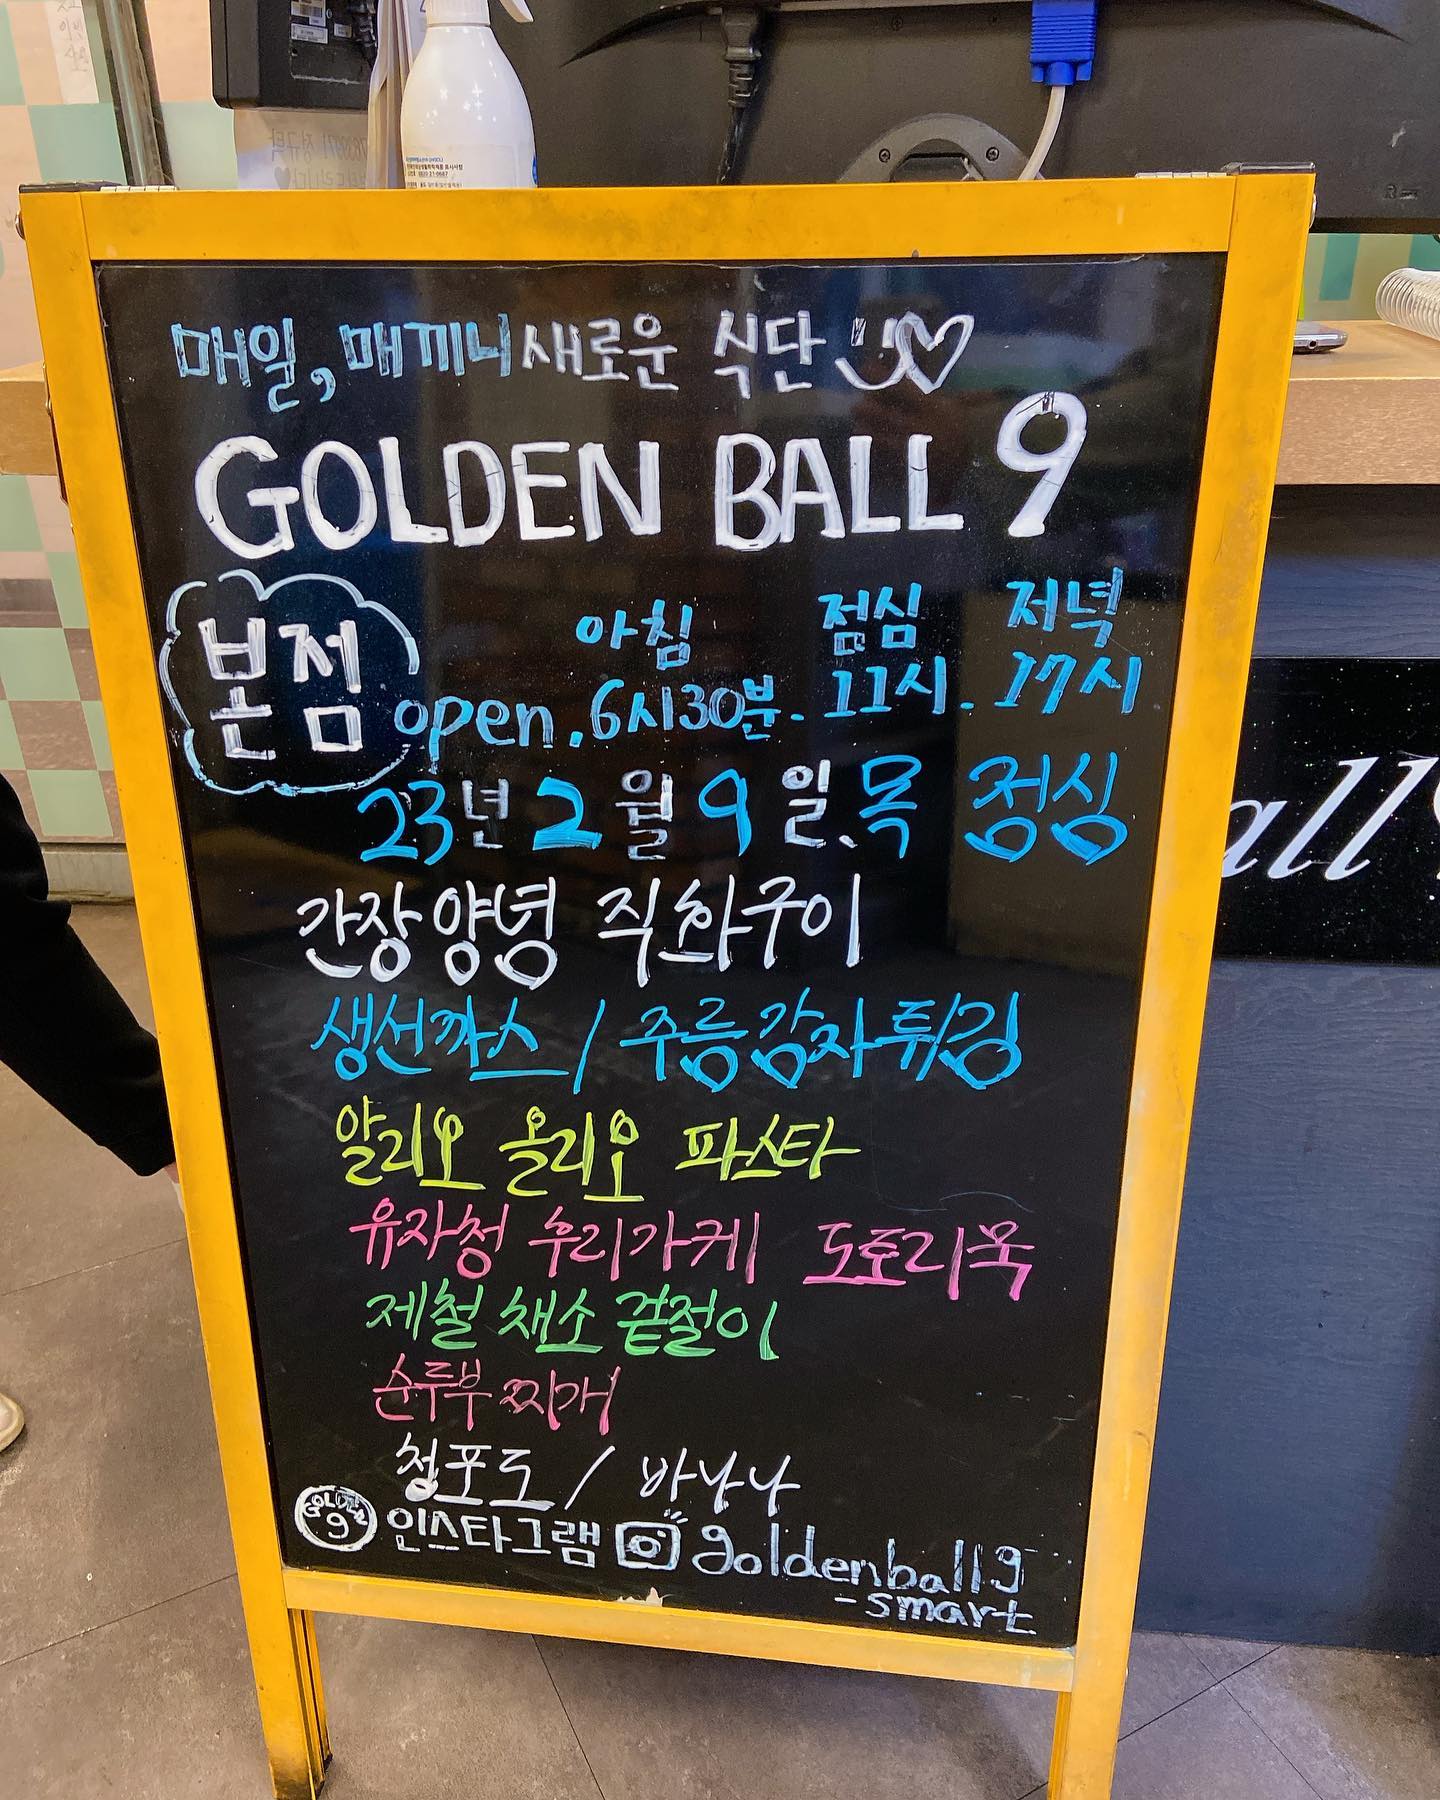 매일, 매끼니 새로운 식단
GOLDEN BALL 9
본점
아침 점심 저녁
open. 6시30분. 11시. 17시
23년 2월 9일. 목 점심
간장양념 직화구이
생선까스 / 주름감자튀김
알리오 올리오 파스타
유자청 후리가케 도토리묵
제철 채소 겉절이
순두부 찌개
청포도 / 바나나
GOLDEN 9 인스타그램 goldenball9
-smart
all